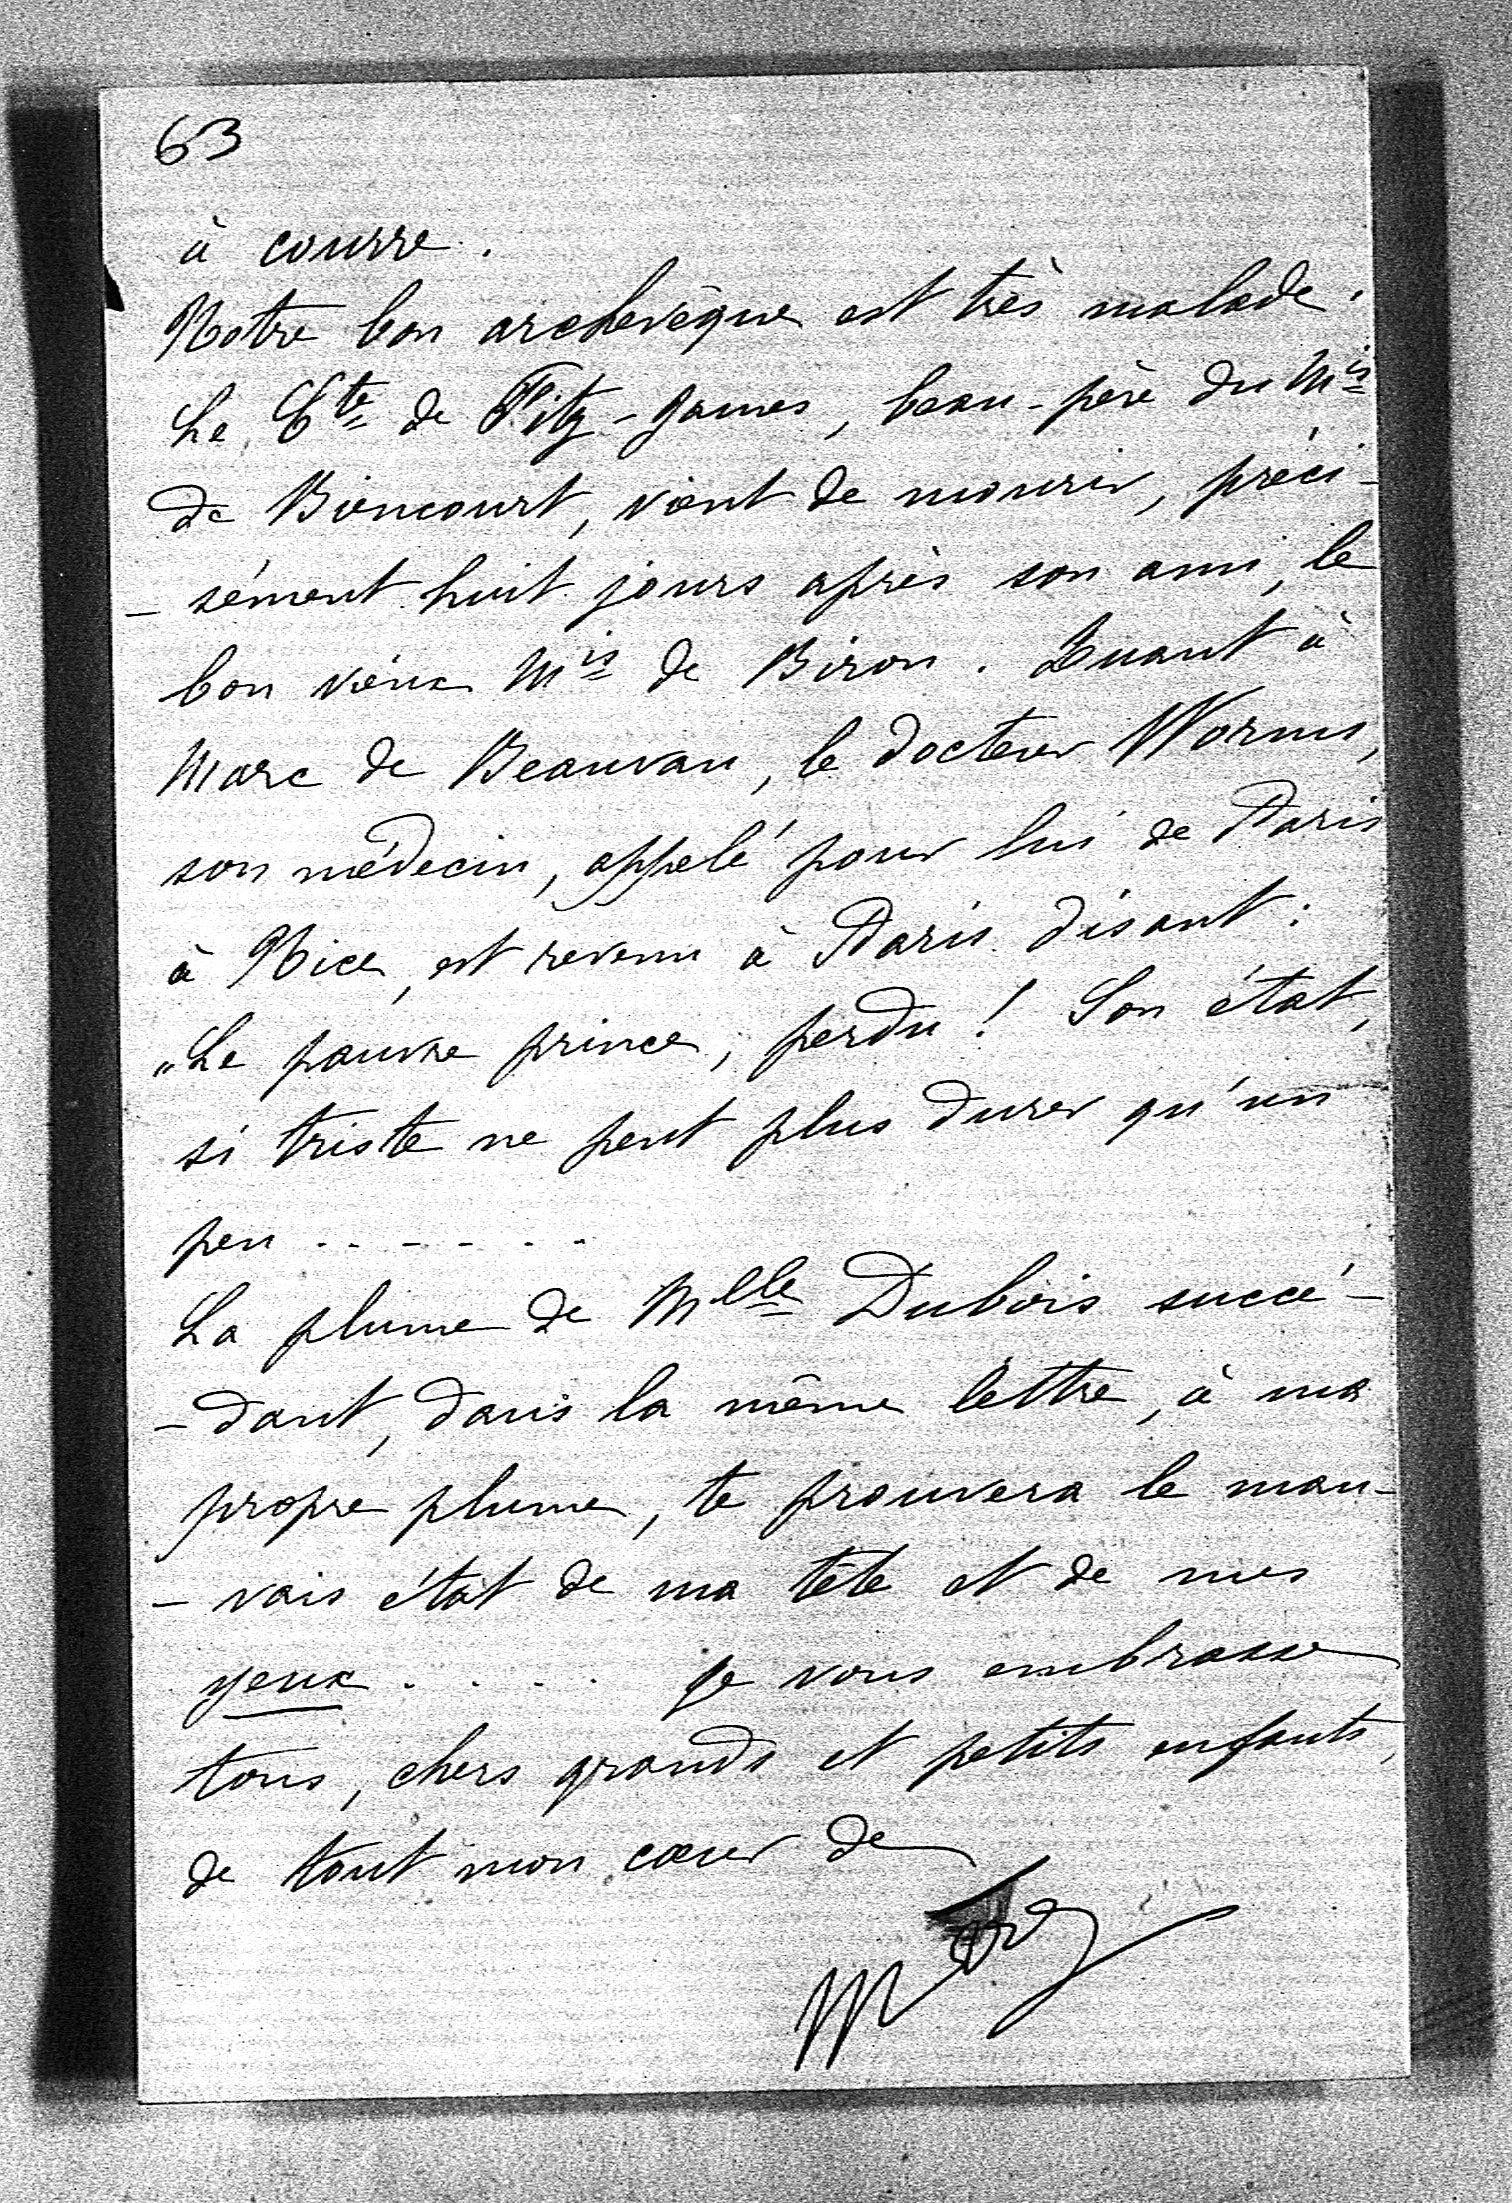 63
à courre.
Notre bon archevêque est très malade.
Le Cte de Fitz-James, beau-père du Mis
de Biencourt, vient de mourir, préci-
-sément huit jours après son ami, le
bon vieux Mis de Biron. Quant à
Marc de Beauvau, le docteur Worms,
son médecin, appelé pour lui de Paris
à Nice, est revenu à Paris disant:
"Le pauvre prince, perdu! Son état,
si triste ne peut plus durer qu'un
peu . . . . . . .
La plume de Mlle Dubois succé-
-dant, dans la même lettre, à ma
propre plume, te prouvera le mau-
-vais état de ma tête et de mes
yeux . . . . Je vous embrasse
tous, chers grands et petits enfants,
de tout mon cœur de